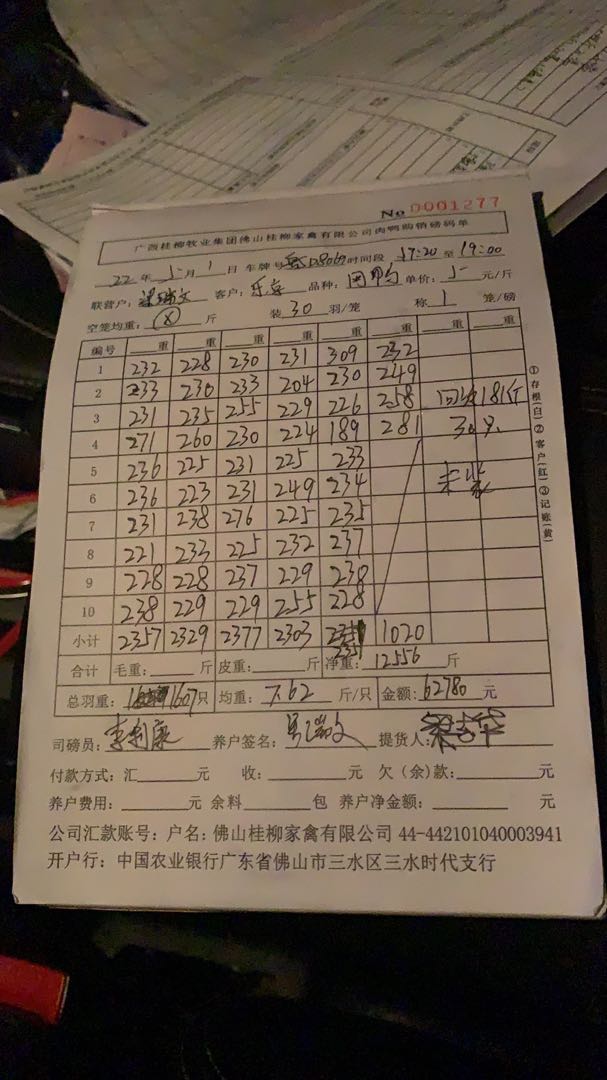 No 0001277
广西桂柳牧业集团佛山桂柳家禽有限公司肉鸭购销磅码单
22 年 5 月 1 日 车牌号 时间段 17:20 至 19:00
联营户: 客户: 乐意 品种: 单价: 5- 元/斤
空笼均重: 8 斤 装 30 羽/笼 称 1 笼/磅
编号 重 重 重 重 重 重 重 重
1 232 228 230 231 309 232
2 233 230 233 204 230 249
3 231 235 255 229 226 258 181斤
4 271 260 230 224 189 281 30只
5 236 225 231 225 233
6 236 223 231 249 234
7 231 238 276 225 235
8 221 233 225 232 237
9 228 228 237 229 238
10 238 229 229 255 228
小计 2357 2329 2377 2303 1020
合计 毛重: 斤 皮重: 斤 净重: 12556 斤
总羽重: 1607只 均重: 7.62 斤/只 金额: 62780 元
司磅员: 李利康 养户签名: 提货人:
付款方式: 汇 元 收: 元 欠(余)款: 元
养户费用: 元 余料 包 养户净金额: 元
公司汇款账号: 户名: 佛山桂柳家禽有限公司 44-442101040003941
开户行: 中国农业银行广东省佛山市三水区三水时代支行
①存根(白)②客户(红)③记账(黄)